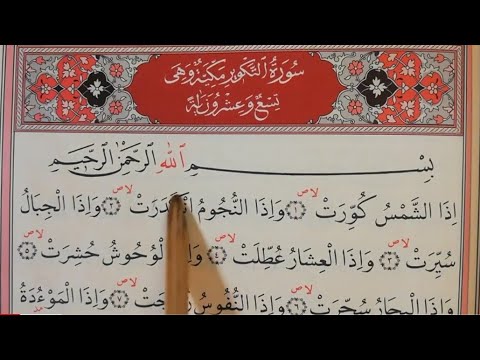 سُورَةُ التَّكْوِيرِ مَكِّيَّةٌ وَهِيَ
تِسْعٌ وَعِشْرُونَ اٰيَةً
بِسْمِ اللّٰهِ الرَّحْمٰنِ الرَّحِيمِ
اِذَا الشَّمْسُ كُوِّرَتْ ۙ ﴿١﴾ وَاِذَا النُّجُومُ ﴿٢﴾ وَاِذَا الْجِبَالُ
سُيِّرَتْ ﴿٣﴾ وَاِذَا الْعِشَارُ عُطِّلَتْ ﴿٤﴾ الْوُحُوشُ حُشِرَتْ ﴿٥﴾
وَاِذَا الْبِحَارُ سُجِّرَتْ ﴿٦﴾ وَاِذَا النُّفُوسُ ﴿٧﴾ وَاِذَا الْمَوْءُدَةُ